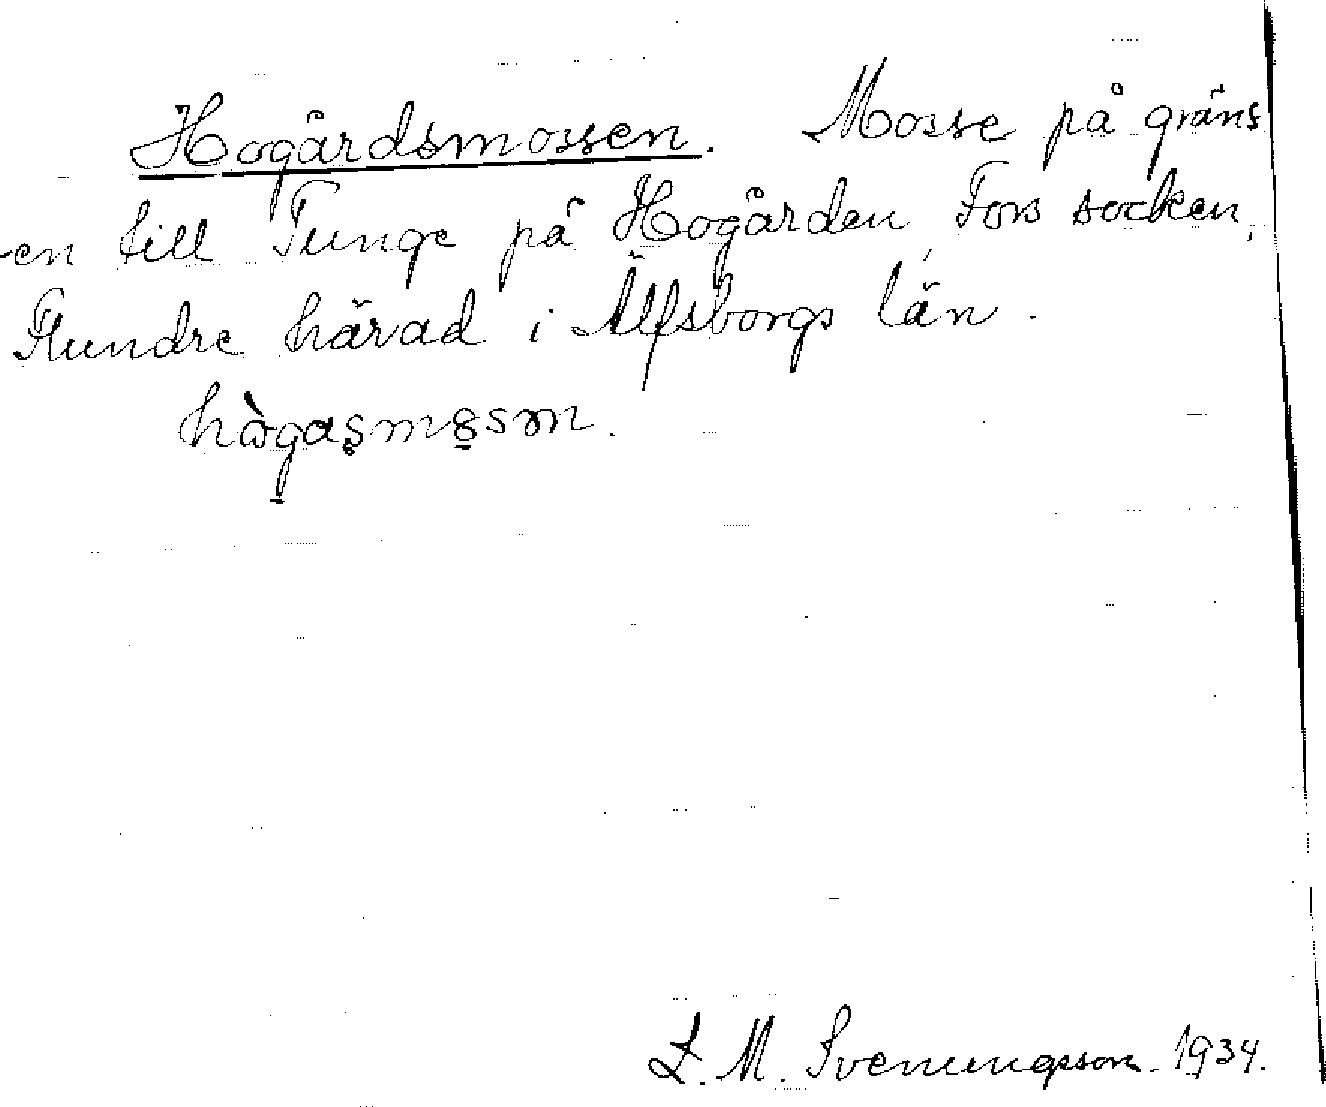 Hogårdsmossen. Mosse på gräns
-en till Tunge på Hogården, Fors socken,
Flundre härad i Älfsborgs län.
L. M. Svenungsson 1934.